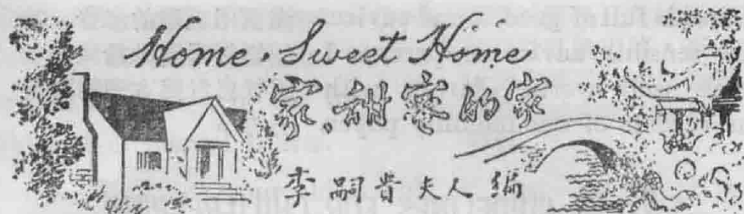 Home, Sweet Home
家，甜蜜的家
李嗣 夫人 編